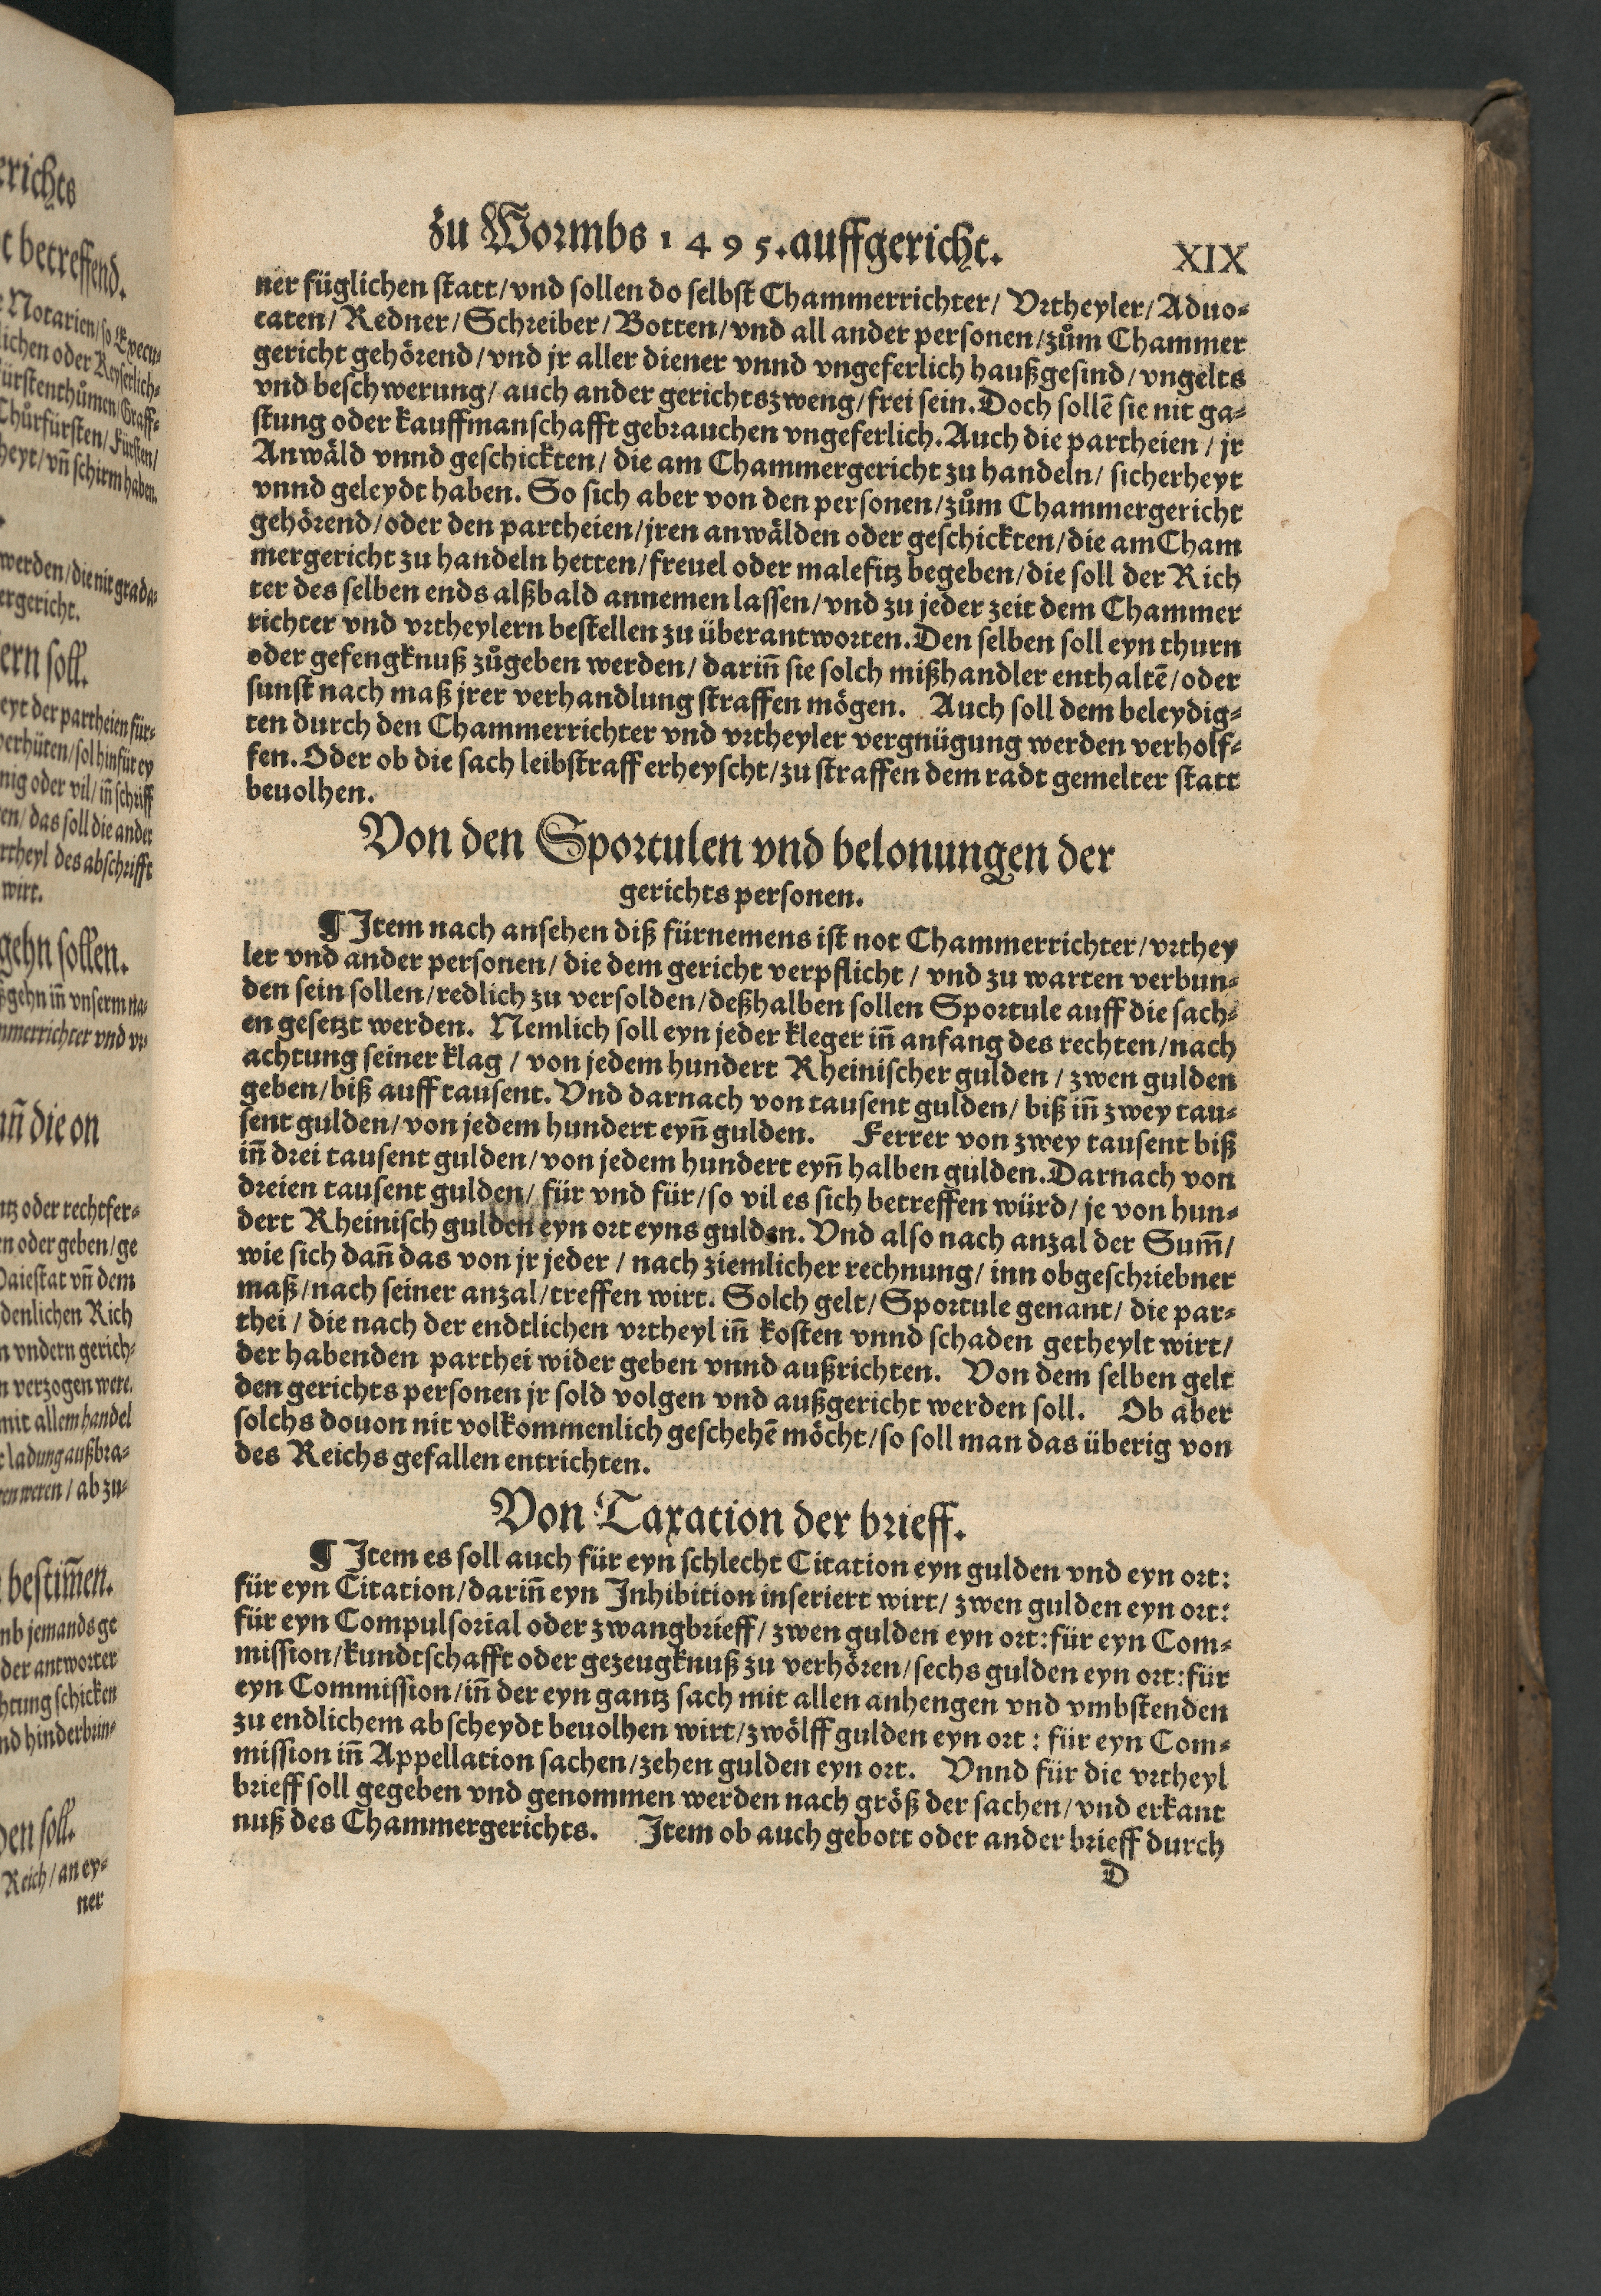 zu Wormbs 1495. auffgericht. XIX
ner füglichen statt/ vnd sollen do selbst Chammerrichter/ Vrtheyler/ Aduo⸗
caten/ Redner/ Schreiber/ Botten/ vnd all ander personen/ zům Chammer
gericht gehörend/ vnd jr aller diener vnnd vngeferlich haußgesind/ vngelts
vnd beschwerung/ auch ander gerichtszweng/ frei sein. Doch sollẽ sie nit ga⸗
stung oder kauffmanschafft gebrauchen vngeferlich. Auch die partheien/ jr
Anwäld vnnd geschickten/ die am Chammergericht zu handeln/ sicherheyt
vnnd geleydt haben. So sich aber von den personen/ zům Chammergericht
gehörend/ oder den partheien/ jren anwälden oder geschickten/ die am Cham
mergericht zu handeln hetten/ freuel oder malefitz begeben/ die soll der Rich
ter des selben ends alßbald annemen lassen/ vnd zu jeder zeit dem Chammer
richter vnd vrtheylern bestellen zu überantworten. Den selben soll eyn thurn
oder gefengknuß zůgeben werden/ dariñ sie solch mißhandler enthaltẽ/ oder
sunst nach maß jrer verhandlung straffen mögen. Auch soll dem beleydig⸗
ten durch den Chammerrichter vnd vrtheyler vergnügung werden verholf⸗
fen. Oder ob die sach leibstraff erheyscht/ zu straffen dem radt gemelter statt
beuolhen.
Von den Sportulen vnd belonungen der
gerichts personen.
¶ Item nach ansehen diß fürnemens ist not Chammerrichter/ vrthey
ler vnd ander personen/ die dem gericht verpflicht/ vnd zu warten verbun⸗
den sein sollen/ redlich zu versolden/ deßhalben sollen Sportule auff die sach⸗
en gesetzt werden. Nemlich soll eyn jeder kleger iñ anfang des rechten/ nach
achtung seiner klag/ von jedem hundert Rheinischer gulden/ zwen gulden
geben/ biß auff tausent. Vnd darnach von tausent gulden/ biß iñ zwey tau⸗
sent gulden/ von jedem hundert eyñ gulden. Ferrer von zwey tausent biß
iñ drei tausent gulden/ von jedem hundert eyñ halben gulden. Darnach von
dreien tausent gulden/ für vnd für/ so vil es sich betreffen würd/ je von hun⸗
dert Rheinisch gulden eyn ort eyns gulden. Vnd also nach anzal der Sum̃/
wie sich dañ das von jr jeder/ nach ziemlicher rechnung/ inn obgeschriebner
maß/ nach seiner anzal/ treffen wirt. Solch gelt/ Sportule genant/ die par⸗
thei/ die nach der endtlichen vrtheyl iñ kosten vnnd schaden getheylt wirt/
der habenden parthei wider geben vnnd außrichten. Von dem selben gelt
den gerichts personen jr sold volgen vnd außgericht werden soll. Ob aber
solchs douon nit volkommenlich geschehẽ möcht/ so soll man das überig von
des Reichs gefallen entrichten.
Von Taxation der brieff.
¶ Item es soll auch für eyn schlecht Citation eyn gulden vnd eyn ort:
für eyn Citation/ dariñ eyn Inhibition inseriert wirt/ zwen gulden eyn ort:
für eyn Compulsorial oder zwangbrieff/ zwen gulden eyn ort: für eyn Com⸗
mission/ kundtschafft oder gezeugknuß zu verhören/ sechs gulden eyn ort: für
eyn Commission/ iñ der eyn gantz sach mit allen anhengen vnd vmbstenden
zu endlichem abscheydt beuolhen wirt/ zwölff gulden eyn ort: für eyn Com⸗
mission iñ Appellation sachen/ zehen gulden eyn ort. Vnnd für die vrtheyl
brieff soll gegeben vnd genommen werden nach größ der sachen/ vnd erkant
nuß des Chammergerichts. Item ob auch gebott oder ander brieff durch
D